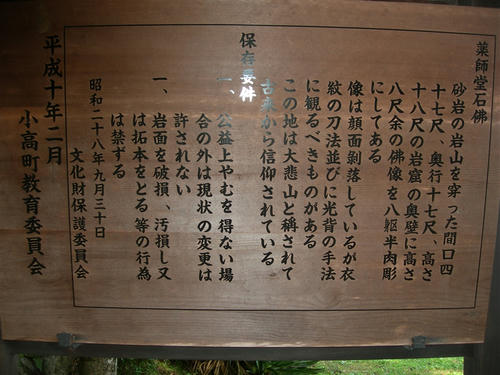 薬師堂石佛
砂岩の岩山を穿った間口四
十七尺、奥行十七尺、高さ
十八尺の岩窟の奥壁に高さ
八尺余の佛像を八躯半肉彫
にしてある
像は顔面剝落しているが衣
紋の刀法並びに光背の手法
に観るべきものがある
この地は大悲山と称されて
古来から信仰されている
保存要件
一、公益上やむを得ない場
合の外は現状の変更は
許されない
一、岩面を破損、汚損し又
は拓本をとる等の行為
は禁ずる
昭和二十八年九月三十日
文化財保護委員会
平成十年二月
小高町教育委員会